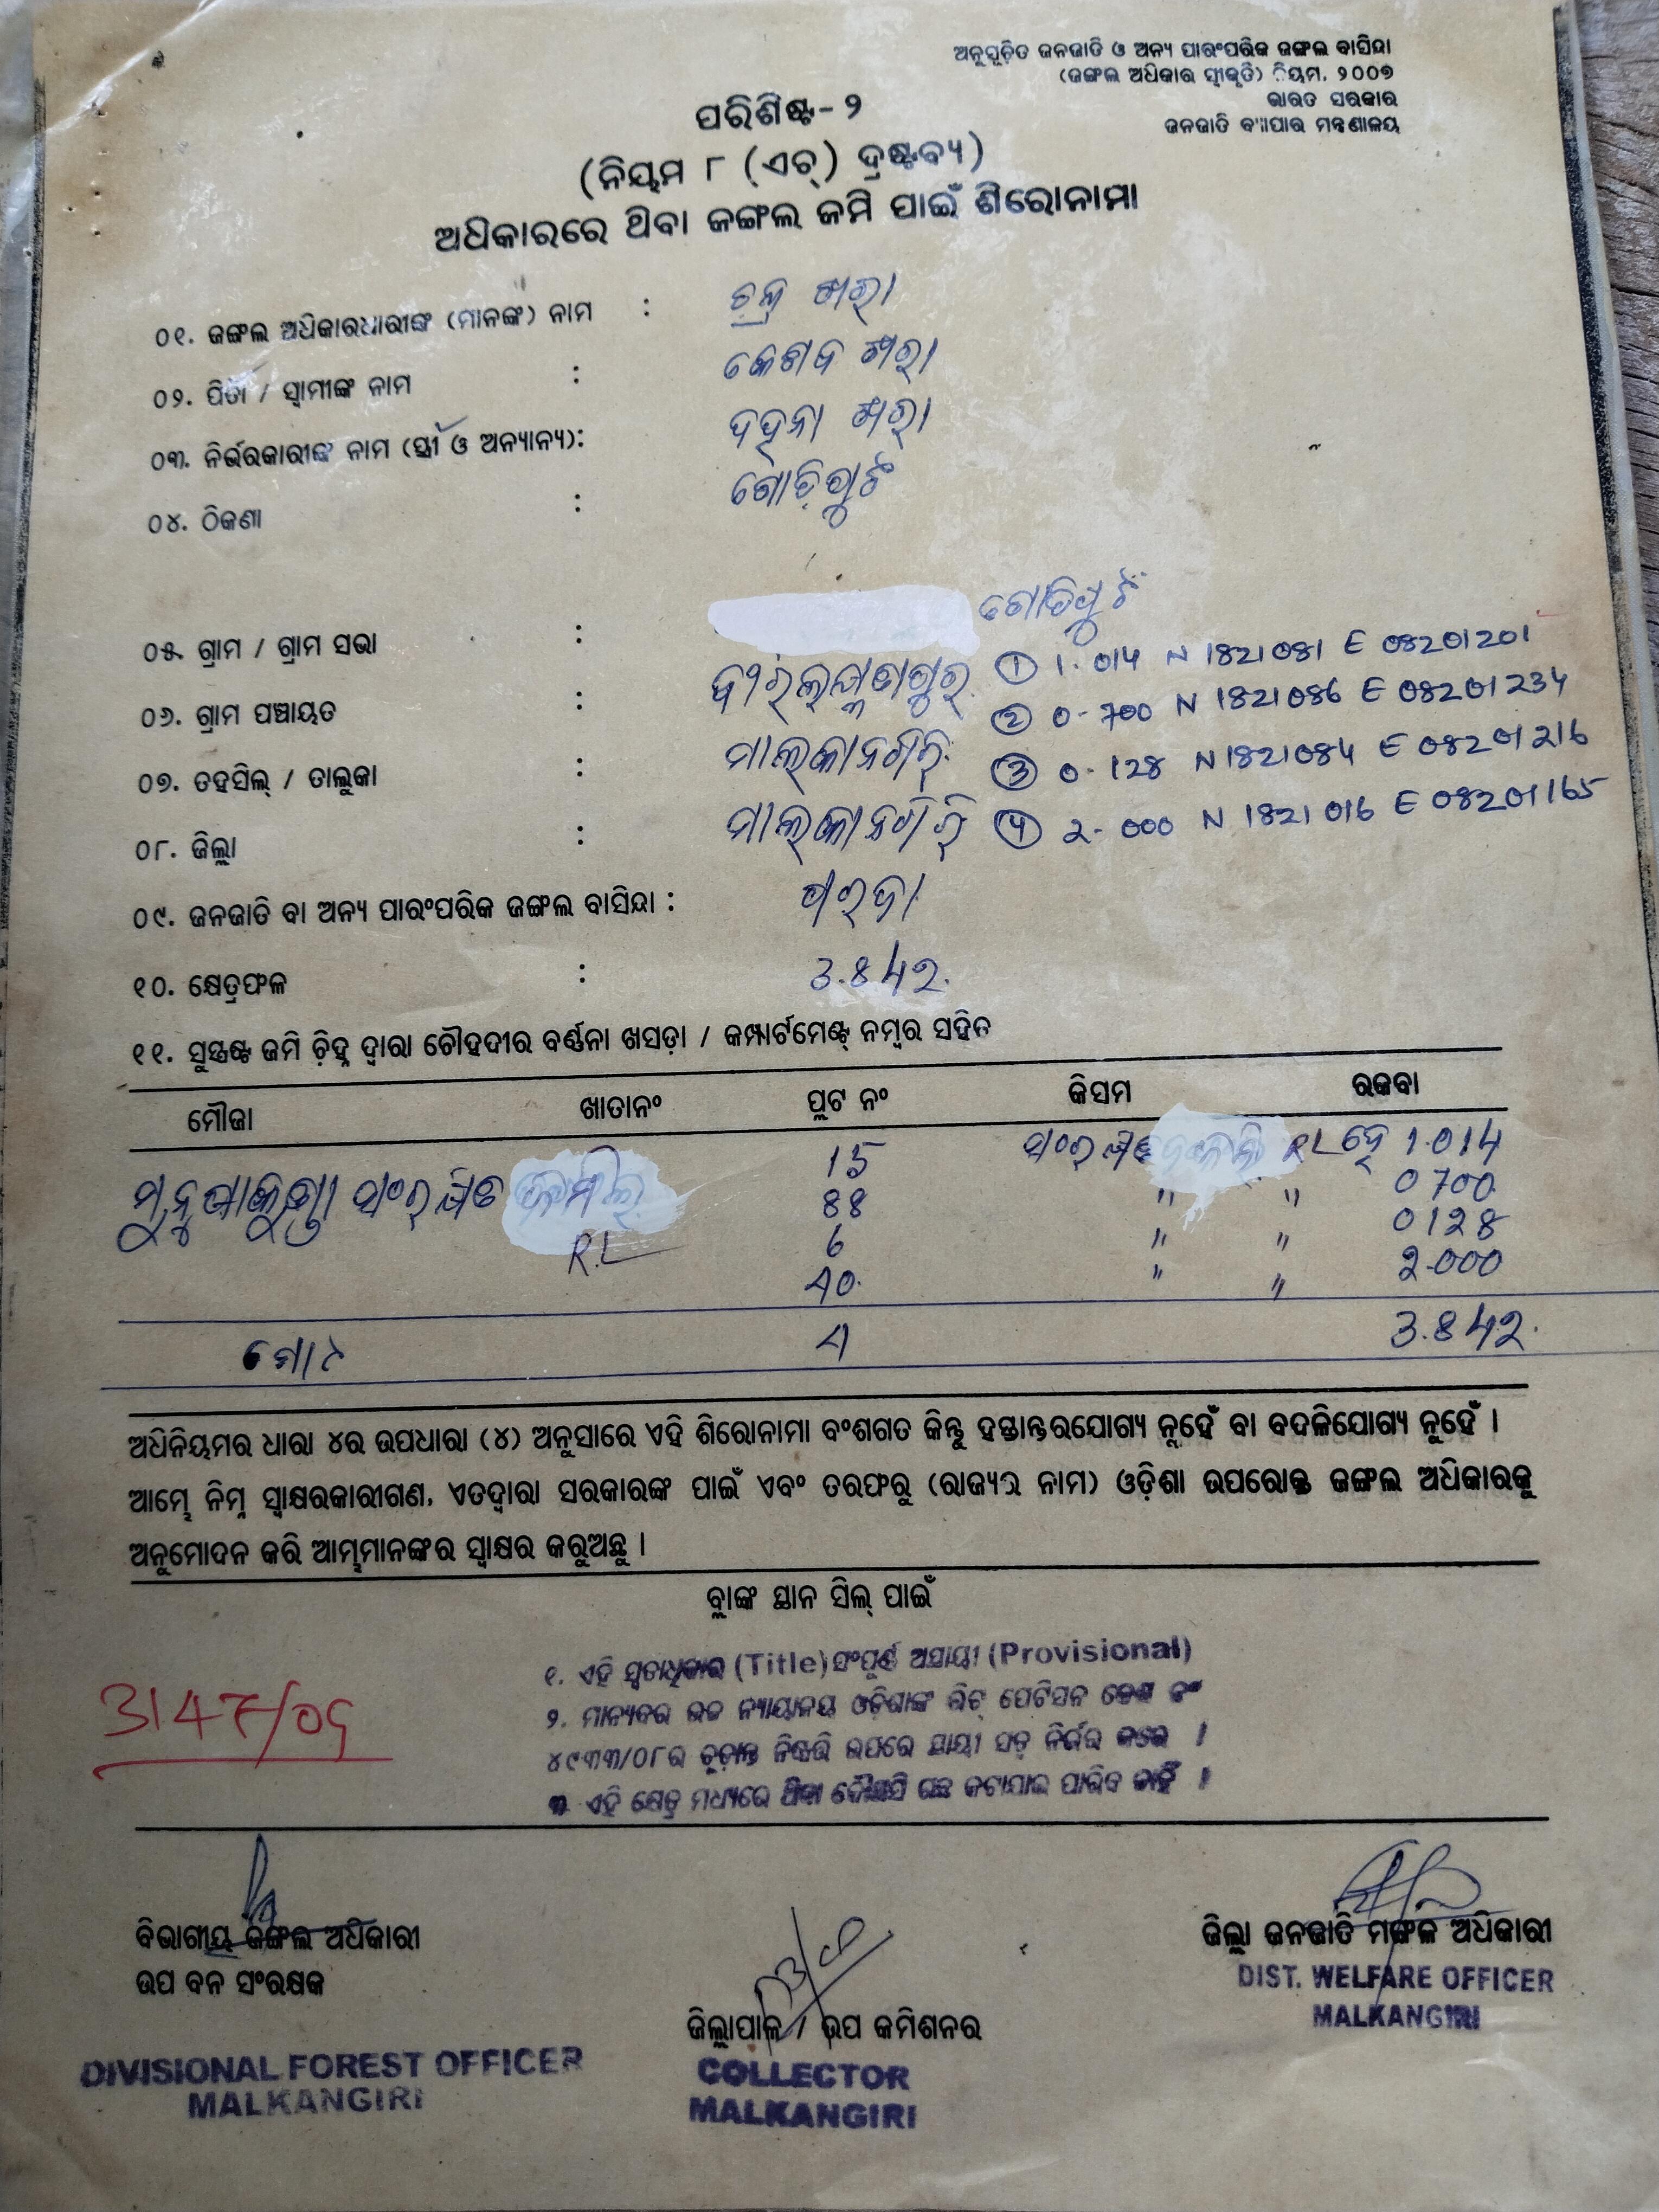 ଅନୁସୂଚିତ ଜନଜାତି ଓ ଅନ୍ୟ ପାରଂପରିକ ଜଙ୍ଗଲ ବାସିନ୍ଦା
(ଜଙ୍ଗଲ ଅଧିକାର ସ୍ୱୀକୃତି) ନିୟମ, ୨୦୦୭
ଭାରତ ସରକାର
ଜନଜାତି ବ୍ୟାପାର ମନ୍ତ୍ରଣାଳୟ
ପରିଶିଷ୍ଟ-୨
(ନିୟମ ୮ (ଏଚ୍) ଦ୍ରଷ୍ଟବ୍ୟ)
ଅଧିକାରରେ ଥିବା ଜଙ୍ଗଲ ଜମି ପାଇଁ ଶିରୋନାମା
୦୧. ଜଙ୍ଗଲ ଅଧିକାରଧାରୀଙ୍କ (ମାନଙ୍କ) ନାମ :
୦୨. ପିତା / ସ୍ୱାମୀଙ୍କ ନାମ :
୦୩. ନିର୍ଭରକାରୀଙ୍କ ନାମ (ସ୍ତ୍ରୀ ଓ ଅନ୍ୟାନ୍ୟ):
୦୪. ଠିକଣା :
୦୫. ଗ୍ରାମ / ଗ୍ରାମ ସଭା :
୦୬. ଗ୍ରାମ ପଞ୍ଚାୟତ : ① 1.014 N 1821081 E 08201201
୦୭. ତହସିଲ୍ / ତାଲୁକା : ମାଲ୍‌କାନଗିରି ② 0-700 N 1821086 E 08201234
③ 0-128 N 1821084 E 08201216
୦୮. ଜିଲ୍ଲା : ମାଲ୍‌କାନଗିରି ④ 2-000 N 1821016 E 08201165
୦୯. ଜନଜାତି ବା ଅନ୍ୟ ପାରଂପରିକ ଜଙ୍ଗଲ ବାସିନ୍ଦା :
୧୦. କ୍ଷେତ୍ରଫଳ : 3.842.
୧୧. ସୁସ୍ପଷ୍ଟ ଜମି ଚିହ୍ନ ଦ୍ୱାରା ଚୌହଦୀର ବର୍ଣ୍ଣନା ଖସଡ଼ା / କମ୍ପାର୍ଟମେଣ୍ଟ୍ ନମ୍ବର ସହିତ
ମୌଜା ଖାତାନଂ ପ୍ଲଟ ନଂ କିସମ ରକବା
15 RL 1.014
ସଂରକ୍ଷିତ 88 " " 0700
R.L 6 " " 0128
40. " " 2.000
ମୋଟ 4 3.842.
ଅଧିନିୟମର ଧାରା ୪ର ଉପଧାରା (୪) ଅନୁସାରେ ଏହି ଶିରୋନାମା ବଂଶଗତ କିନ୍ତୁ ହସ୍ତାନ୍ତରଯୋଗ୍ୟ ନୁହେଁ ବା ବଦଳିଯୋଗ୍ୟ ନୁହେଁ ।
ଆମ୍ଭେ ନିମ୍ନ ସ୍ୱାକ୍ଷରକାରୀଗଣ, ଏତଦ୍ୱାରା ସରକାରଙ୍କ ପାଇଁ ଏବଂ ତରଫରୁ (ରାଜ୍ୟର ନାମ) ଓଡ଼ିଶା ଉପରୋକ୍ତ ଜଙ୍ଗଲ ଅଧିକାରକୁ
ଅନୁମୋଦନ କରି ଆମ୍ଭମାନଙ୍କର ସ୍ୱାକ୍ଷର କରୁଅଛୁ ।
ବ୍ଲାଙ୍କ ସ୍ଥାନ ସିଲ୍ ପାଇଁ
୧. ଏହି ସ୍ୱତ୍ତ୍ୱାଧିକାର (Title) ସଂପୂର୍ଣ୍ଣ ଅସ୍ଥାୟୀ (Provisional)
୨. ମାନ୍ୟବର ଉଚ୍ଚ ନ୍ୟାୟାଳୟ ଓଡ଼ିଶାଙ୍କ ରିଟ୍ ପେଟିସନ କେଶ ନଂ
୪୯୩୩/୦୮ର ଚୂଡ଼ାନ୍ତ ନିଷ୍ପତ୍ତି ଉପରେ ସ୍ଥାୟୀ ସତ୍ତ୍ୱ ନିର୍ଭର କରେ ।
୩ ଏହି କ୍ଷେତ୍ର ମଧ୍ୟରେ ଥିବା କୌଣସି ଗଛ କଟାଯାଇ ପାରିବ ନାହିଁ ।
3147/09
ବିଭାଗୀୟ ଜଙ୍ଗଲ ଅଧିକାରୀ
ଉପ ବନ ସଂରକ୍ଷକ
DIVISIONAL FOREST OFFICER
MALKANGIRI
ଜିଲ୍ଲାପାଳ / ଉପ କମିଶନର
COLLECTOR
MALKANGIRI
ଜିଲ୍ଲା ଜନଜାତି ମଙ୍ଗଳ ଅଧିକାରୀ
DIST. WELFARE OFFICER
MALKANGIRI